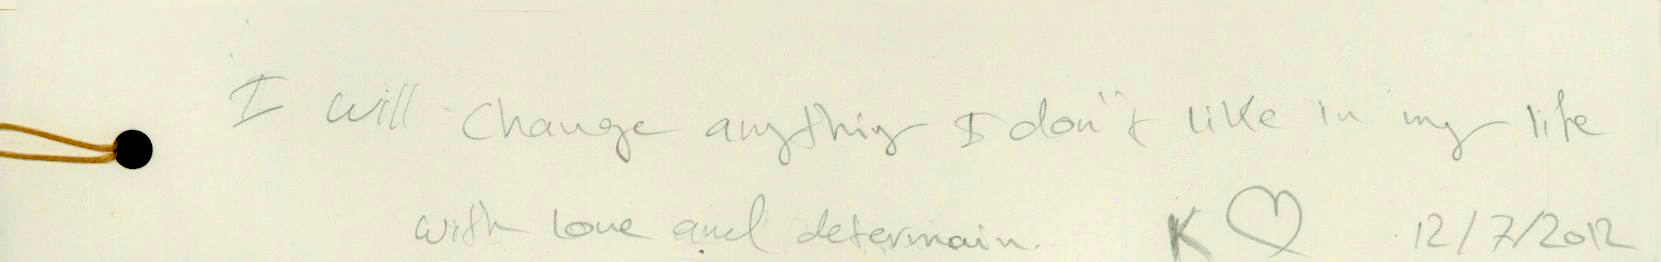 I will change anything I don't like in my life
with love and determain.   K ♡   12/7/2012